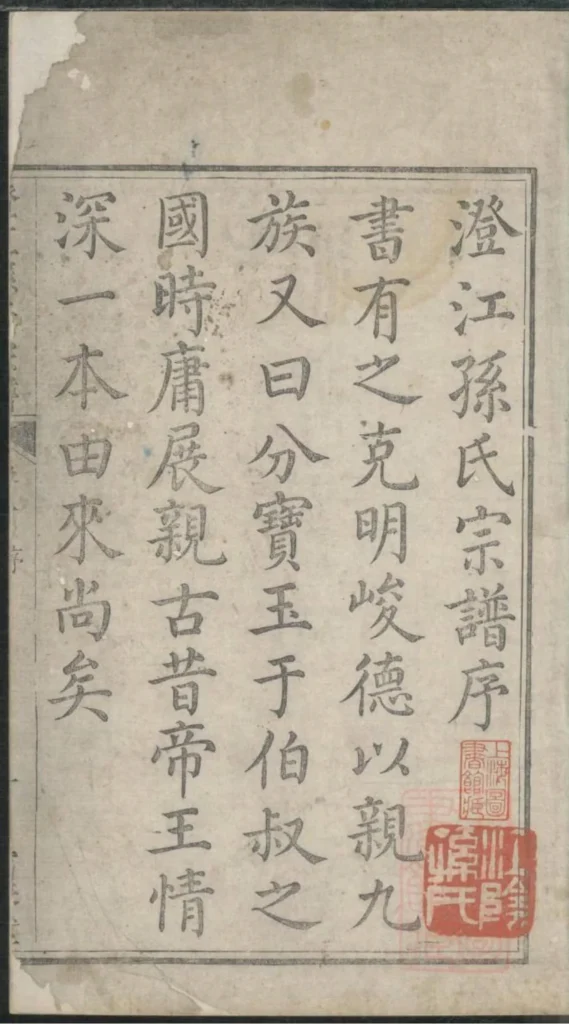 澄江孫氏宗譜序
書有之克明峻德以親九
族又曰分寶玉于伯叔之
國時庸展親古昔帝王情
深一本由來尚矣
上海圖書館藏
江陰孫氏